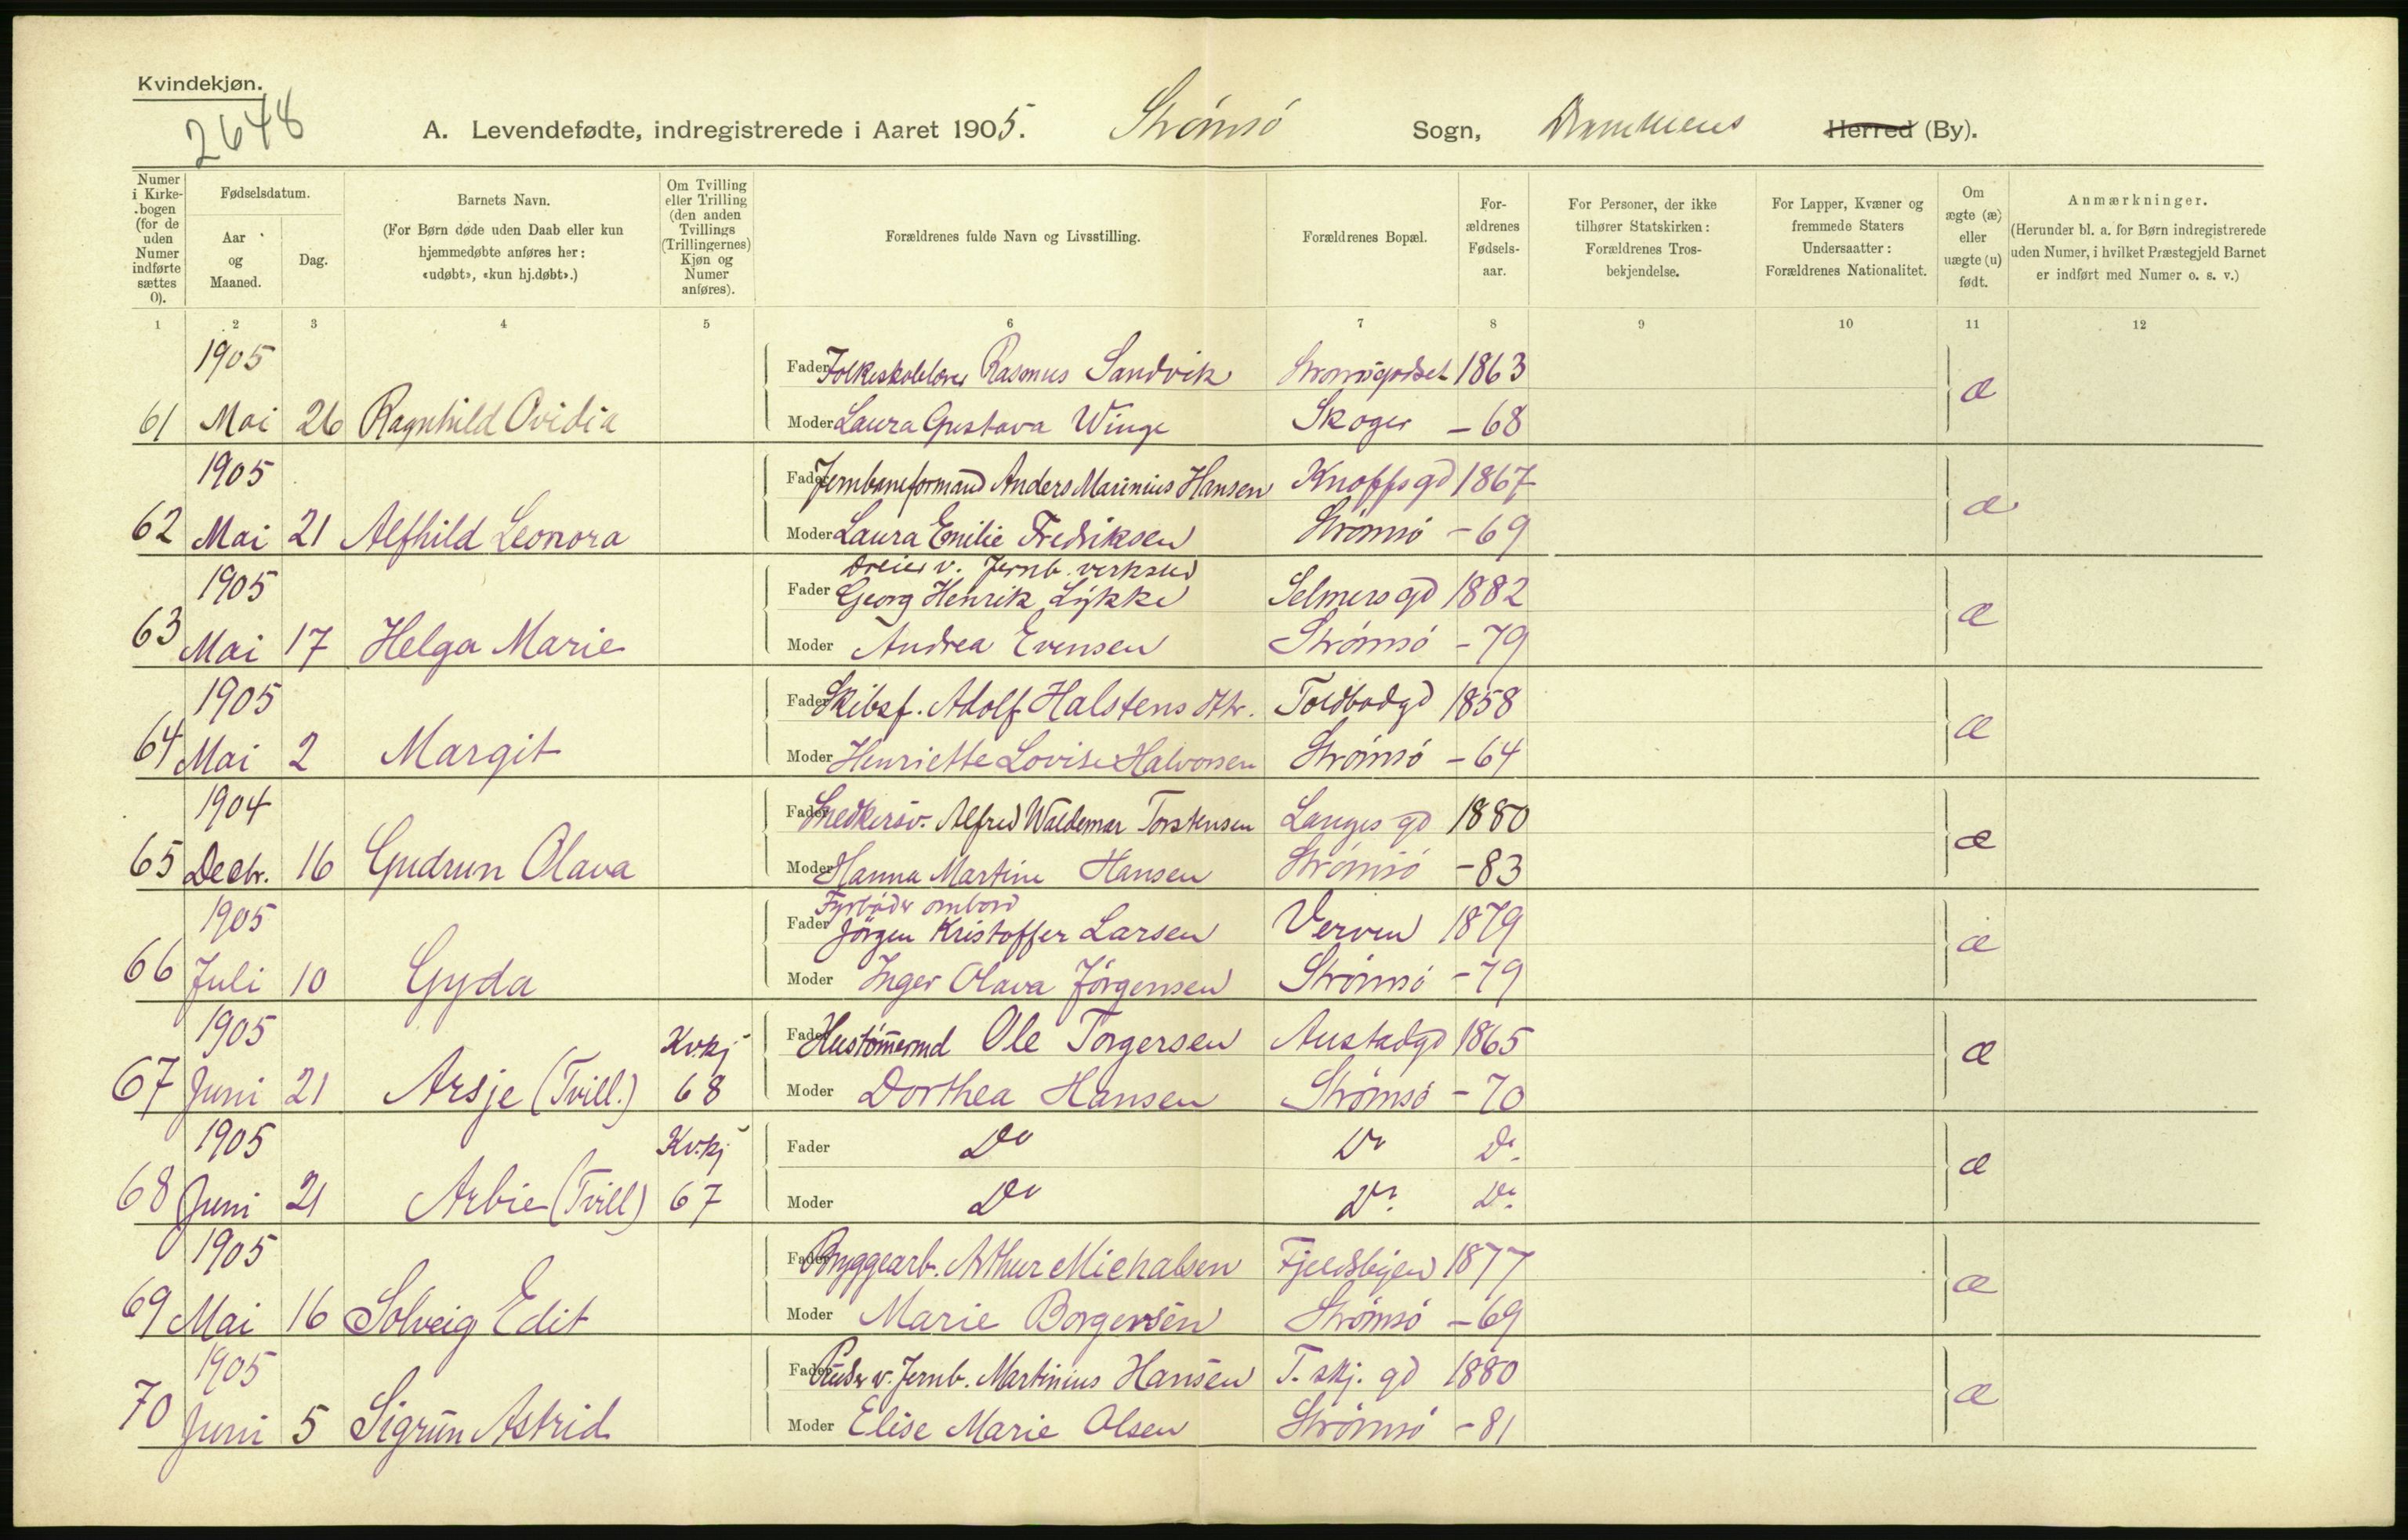 Kvindekjøn.
2648
A. Levendefødte, indregistrerede i Aaret 1905. Strømsö Sogn, Drammens Herred (By).
Numer i Kirke-bogen (for de uden Numer indførte sættes 0).
Fødselsdatum.
Aar og Maaned.
Dag.
Barnets Navn.
(For Børn døde uden Daab eller kun hjemmedøbte anføres her: «udøbt», «kun hj.døbt».)
Om Tvilling eller Trilling (den anden Tvillings (Trillingernes) Kjøn og Numer anføres).
Forældrenes fulde Navn og Livsstilling.
Forældrenes Bopæl.
For-ældrenes Fødsels-aar.
For Personer, der ikke tilhører Statskirken: Forældrenes Tros-bekjendelse.
For Lapper, Kvæner og fremmede Staters Undersaatter: Forældrenes Nationalitet.
Om ægte (æ) eller uægte (u) født.
Anmærkninger.
(Herunder bl. a. for Børn indregistrerede uden Numer, i hvilket Præstegjeld Barnet er indført med Numer o. s. v.)
1 2 3 4 5 6 7 8 9 10 11 12
1905 Fader Folkeskolelærer Rasmus Sandvik Strømsgodset 1863 æ
61 Mai 26 Ragnhild Ovidia Moder Laura Gustava Winge Skoger - 68
1905 Fader Jernbaneformand Anders Marinius Hansen Knoffsgd 1867 æ
62 Mai 21 Alfhild Leonora Moder Laura Emilie Fredriksen Strömsö - 69
Dreier v. Jernb. verksted
1905 Fader Georg Henrik Lykke Selmersgd 1882 æ
63 Mai 17 Helga Marie Moder Andrea Evensen Strömsö - 79
1905 Fader Skibsf. Adolf Halstens Toldbodgd 1858 æ
64 Mai 2 Margit Moder Henriette Lovise Halvorsen Strömsö - 64
1904 Fader Snedkersv. Alfred Waldemar Torstensen Langes gd 1880 æ
65 Decbr. 16 Gudrun Olava Moder Hanna Martine Hansen Strömsö - 83
Fyrböder ombord
1905 Fader Jörgen Kristoffer Larsen Verven 1879 æ
66 Juli 10 Gyda Moder Inger Olava Jörgensen Strömsö - 79
1905 Kv.kj Fader Hustömermd Ole Torgersen Austadgd 1865 æ
67 Juni 21 Arsje (Tvill.) 68 Moder Dorthea Hansen Strömsö - 70
1905 Kv.kj Fader Do Do Do æ
68 Juni 21 Arbie (Tvill) 67 Moder Do Do Do
1905 Fader Bryggearb. Arthur Michalsen Fjeldbyen 1877 æ
69 Mai 16 Solveig Edit Moder Marie Borgersen Strömsö - 69
1905 Fader Pudser v. Jernb. Martinius Hansen T. skj. gd 1880 æ
70 Juni 5 Sigrun Astrid Moder Elise Marie Olsen Strömsö - 81